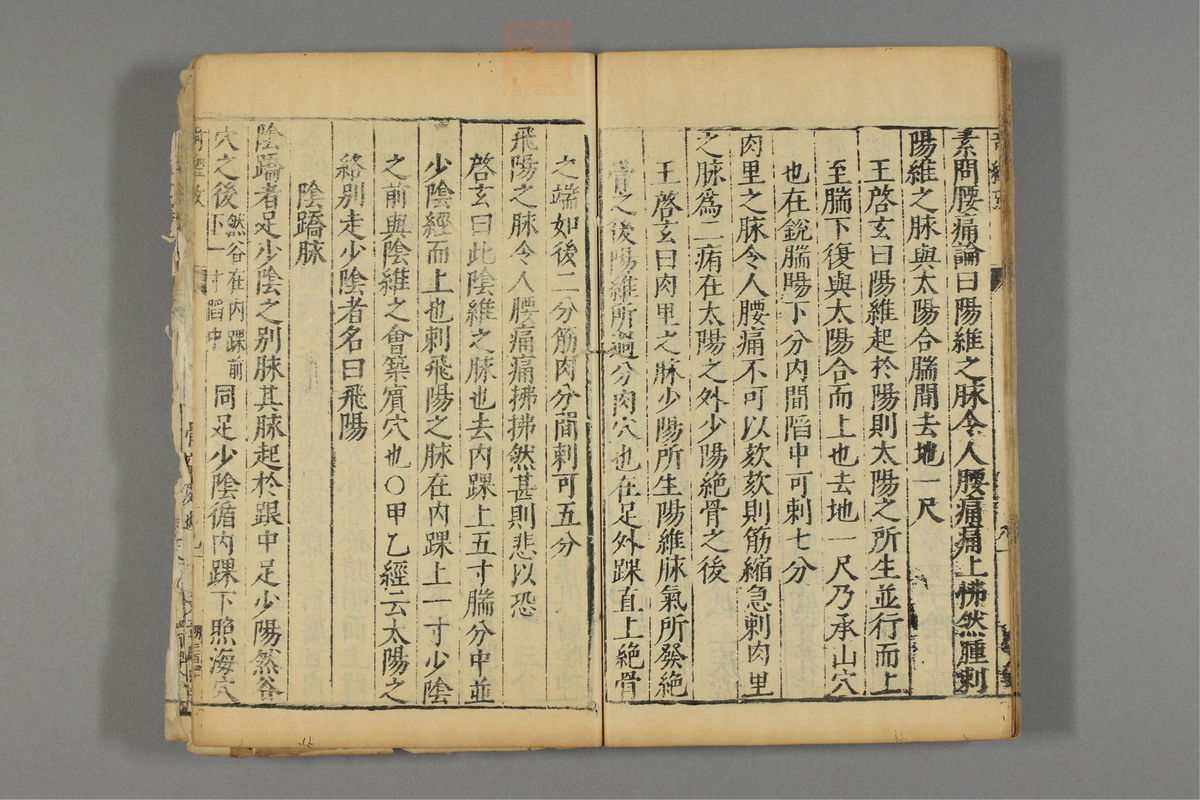 素問腰痛論曰陽維之脉令人腰痛痛上怫然腫刺
陽維之脉與太陽合腨間去地一尺
王啓玄曰陽維起於陽則太陽之所生並行而上
至腨下復與太陽合而上也去地一尺乃承山穴
也在銳腨腸下分内間陷中可刺七分
肉里之脉令人腰痛不可以欬欬則筋縮急刺肉里
之脉為二痏在太陽之外少陽絶骨之後
王啓玄曰肉里之脉少陽所生陽維脉氣所發絶
骨之後陽維所過分肉穴也在足外踝直上絶骨
之端如後二分筋肉分間刺可五分
飛陽之脉令人腰痛痛拂拂然甚則悲以恐
啓玄曰此陰維之脉也去内踝上五寸腨分中並
少陰經而上也刺飛陽之脉在内踝上一寸少陰
之前與陰維之會築賔穴也○甲乙經云太陽之
絡别走少陰者名曰飛陽
陰蹻脉
陰蹻者足少陰之别脉其脉起於跟中足少陽然谷
穴之後然谷在内踝前下一寸陷中同足少陰循内踝下照海穴